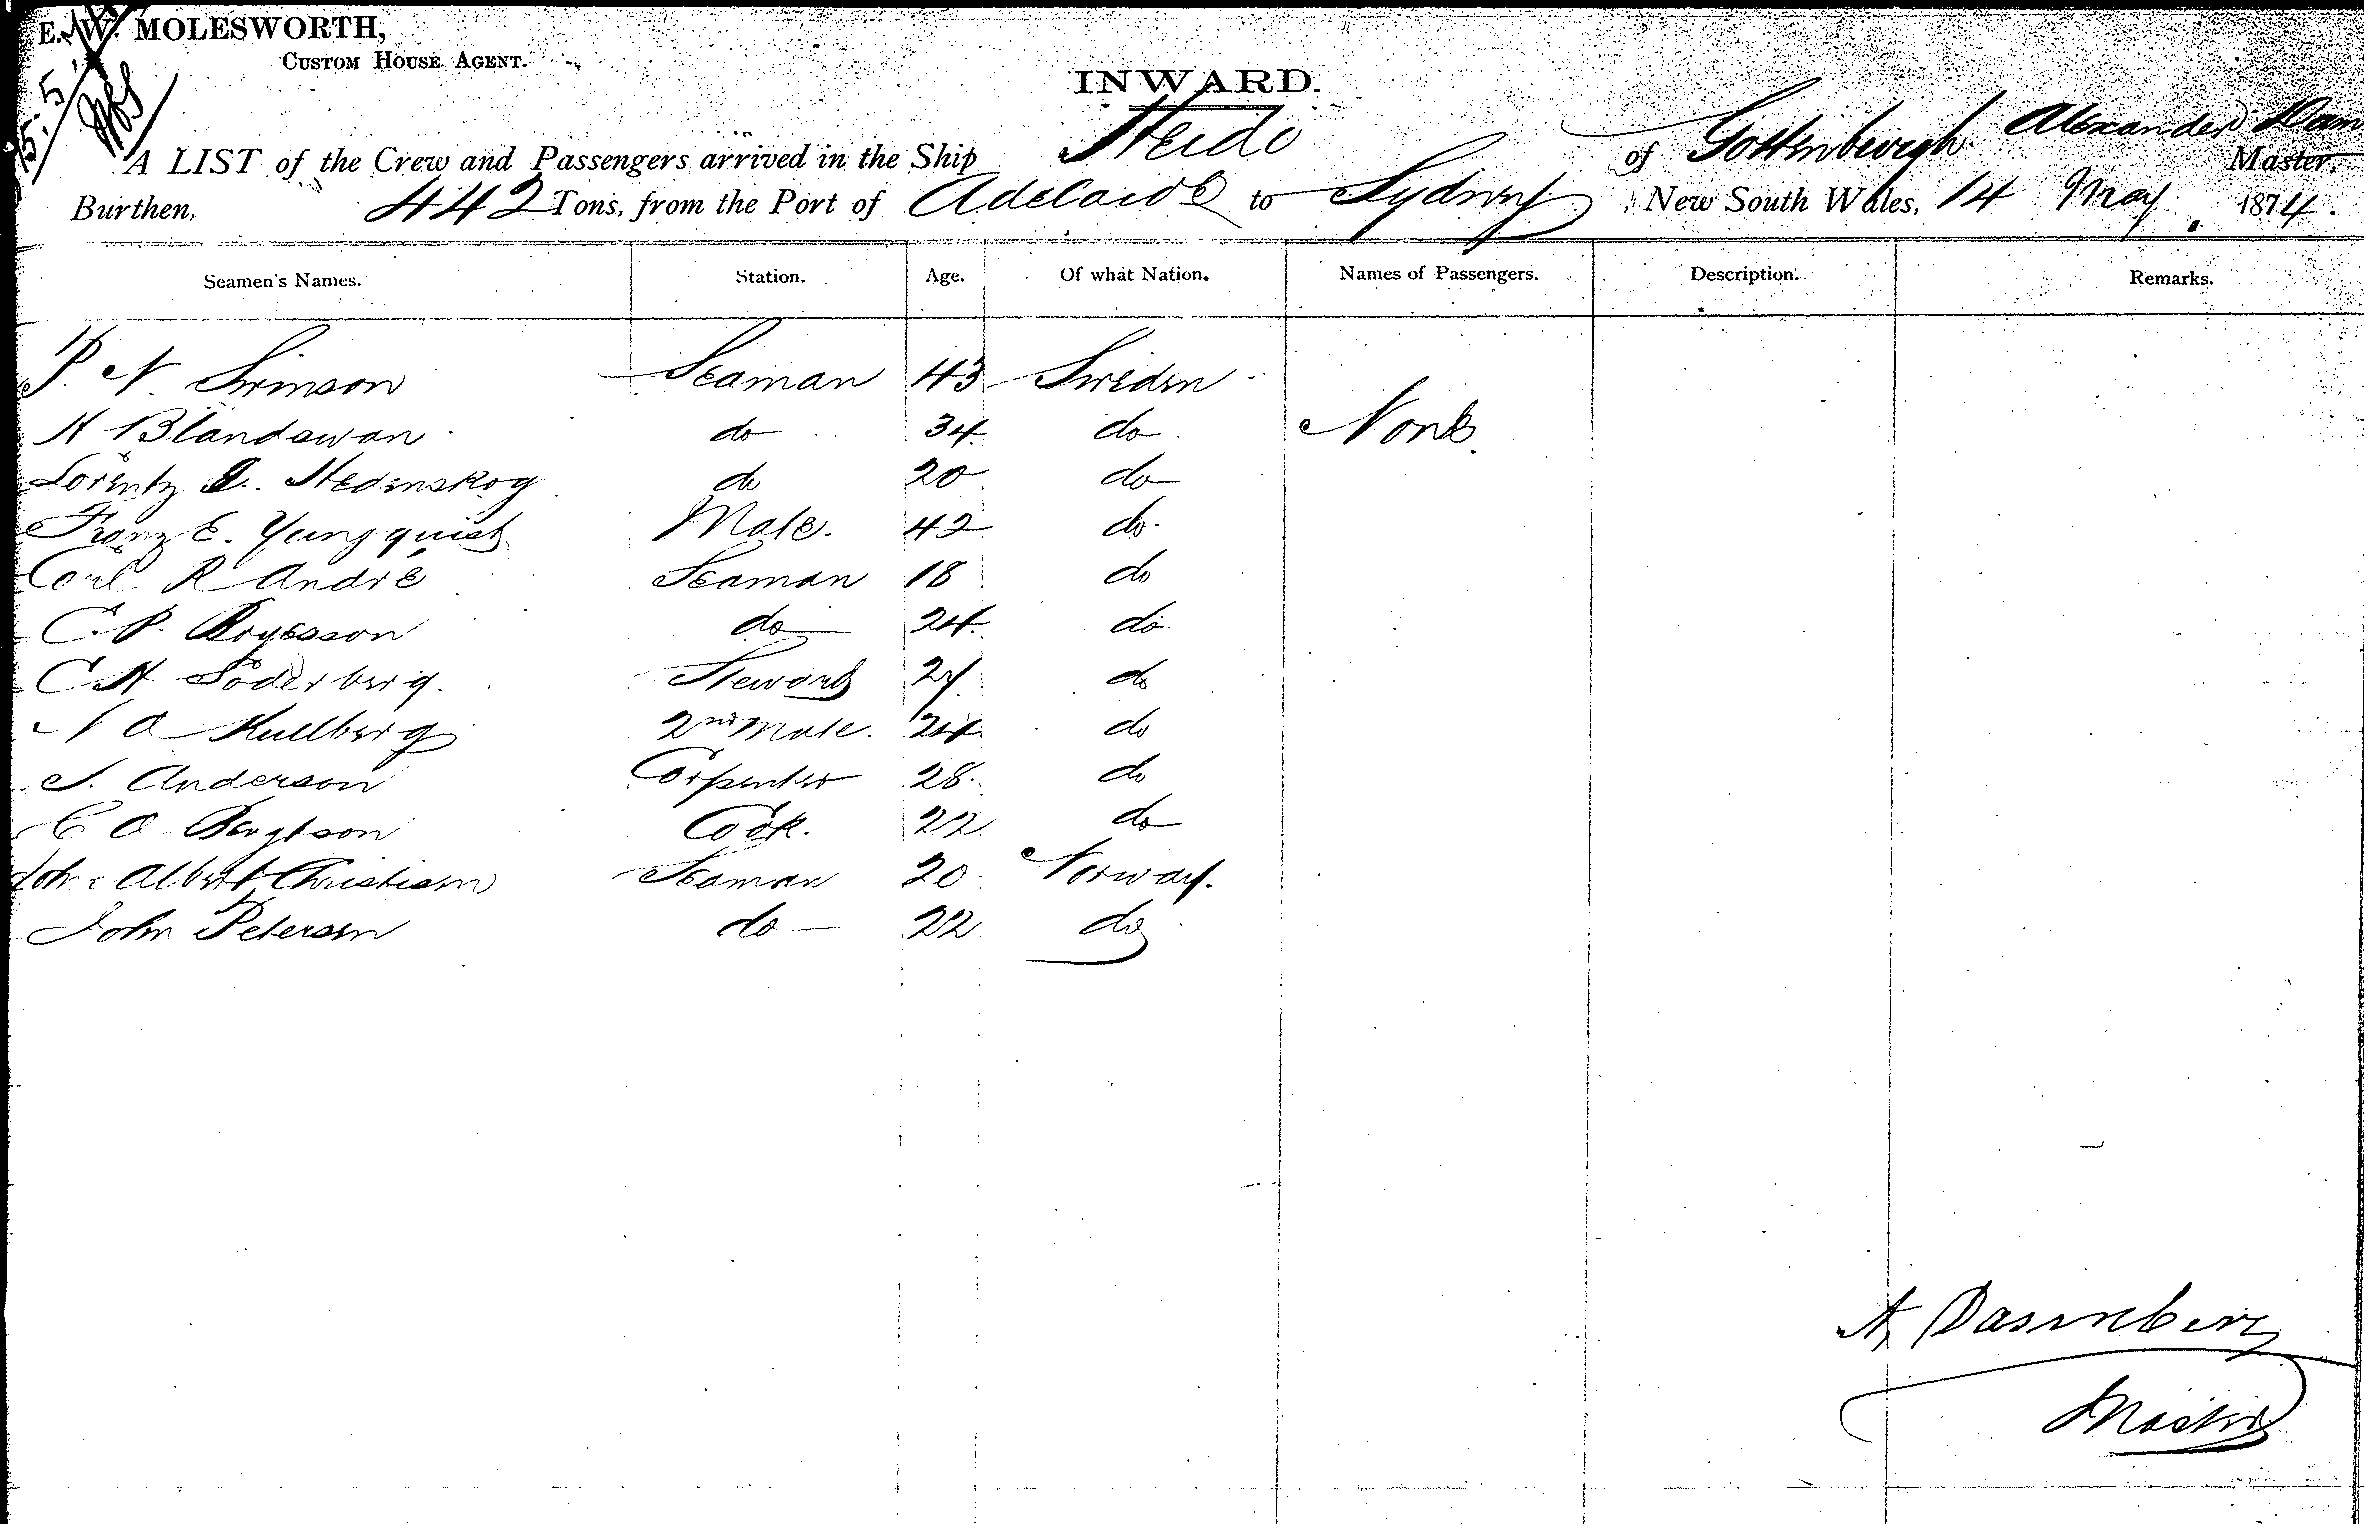 E. W. MOLESWORTH,
CUSTOM HOUSE AGENT.
INWARD.
A LIST of the Crew and Passengers arrived in the Ship Heido of Gottenburgh Alexander Master,
Burthen, 442 Tons, from the Port of Adelaide to Sydney, New South Wales, 14 May 1874.
Seamen's Names. Station. Age. Of what Nation. Names of Passengers. Description. Remarks.
P. N. Seaman 43 Sweden
do 34 do None
Lorentz Hedenskog do 20 do
Franz E. Yungquist Mate. 42 do
Carl R André Seaman 18 do
C. P. do 24 do
C H Söderberg. Steward 27 do
Kullberg 2nd Mate. 24 do
Anderson Carpenter 28 do
C O Bengtson Cook. 22 do
Albert Christian Seaman 20 Norway.
John Petersen do 22 do
A
Master